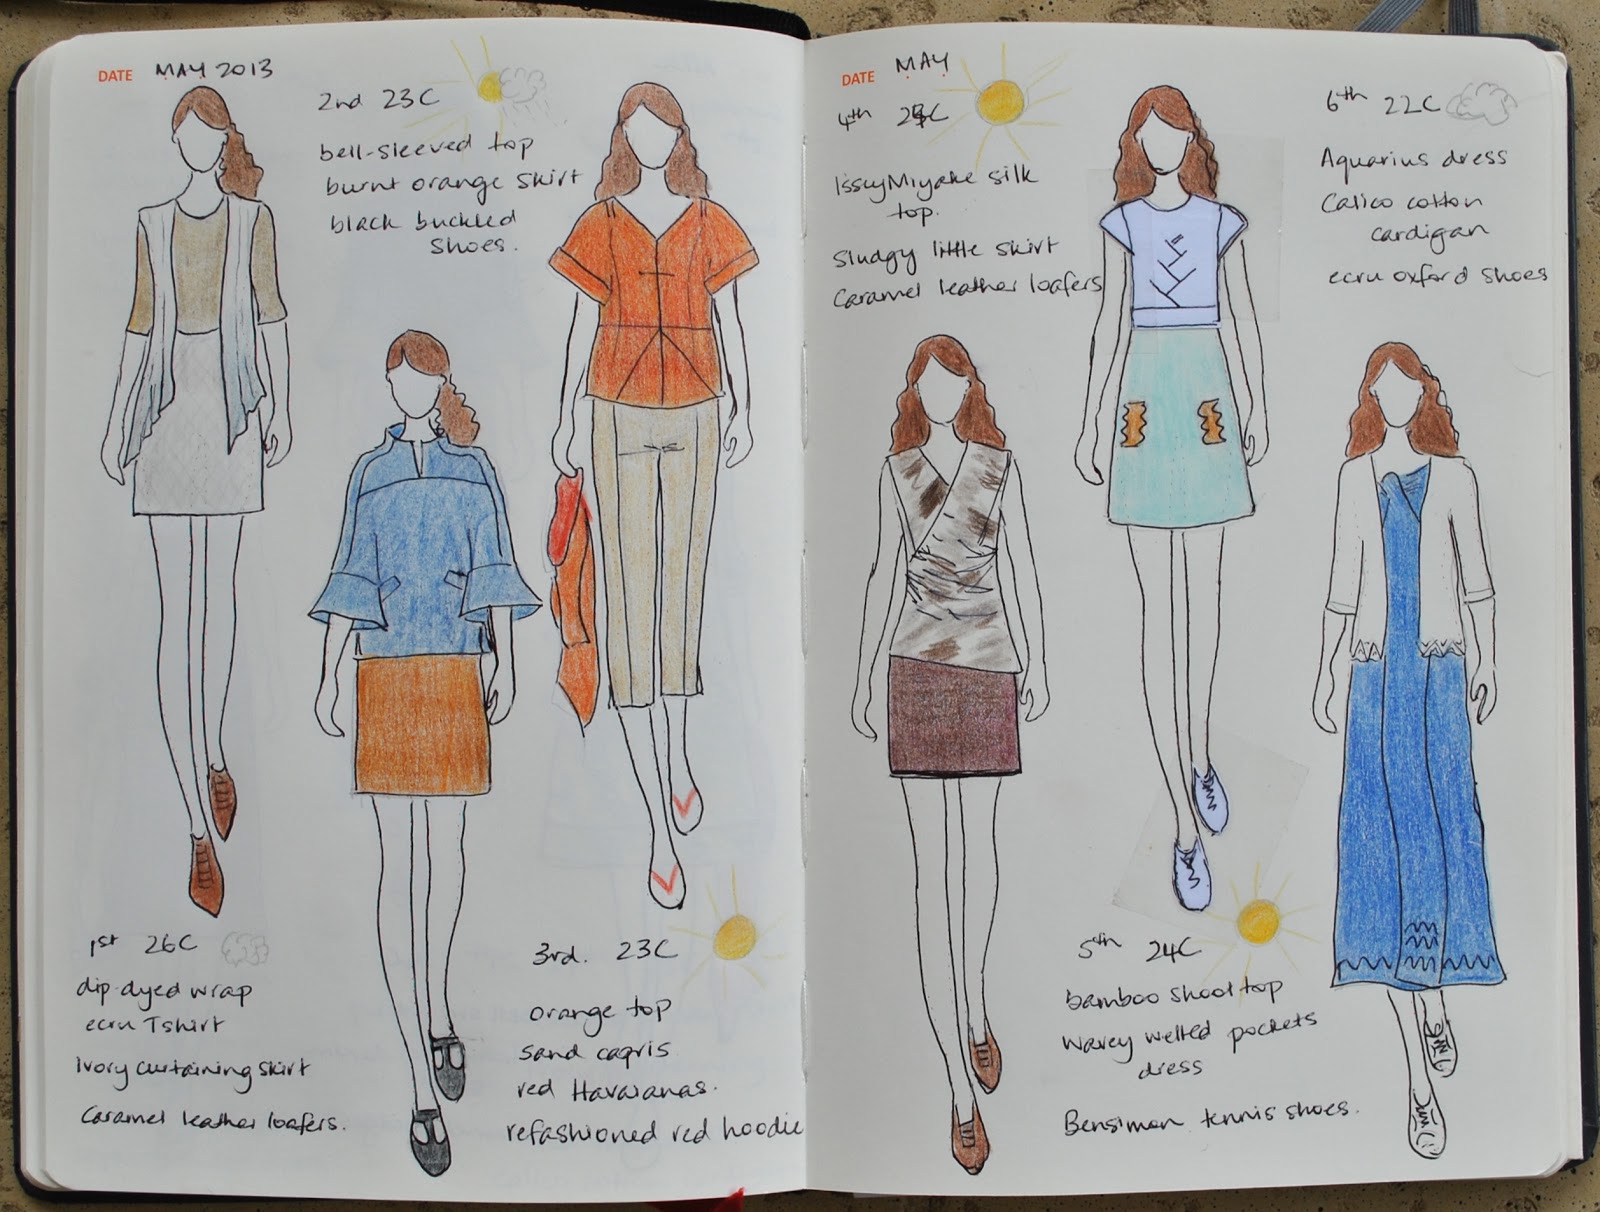 DATE MAY 2013
2nd 23C
bell-sleeved top
burnt orange skirt
black buckled
shoes.
1st 26C
dip-dyed wrap
ecru Tshirt
Ivory curtaining skirt
Caramel leather loafers.
3rd. 23C
orange top
sand capris
red Havaianas.
refashioned red hoodie
DATE MAY
4th C
Issey Miyake silk
top.
Sludgy little skirt
Caramel leather loafers
6th 22C
Aquarius dress
Calico cotton
cardigan
ecru oxford shoes
5th 24C
bamboo shoot top
Wavey welted pockets
dress
Bensimon tennis shoes.